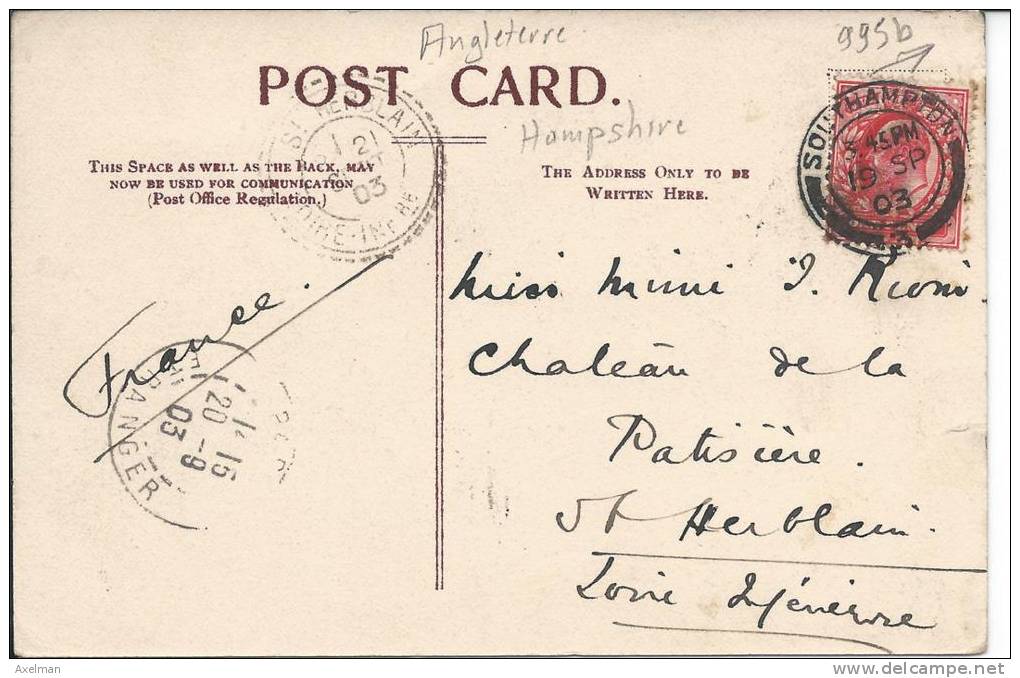 Angleterre
995b
POST CARD.
Hampshire
THIS SPACE AS WELL AS THE BACK, MAY
NOW BE USED FOR COMMUNICATION
(Post Office Regulation.)
THE ADDRESS ONLY TO BE
WRITTEN HERE.
ST HERBLAIN
21
03
LOIRE-INFRE
SOUTHAMPTON
45PM
19 SP
03
3
France.
ETRANGER
15
20 - 9
03
Miss Mimi J.
Chateau de la
Patisière.
St Herblain.
Loire Inférieure
Axelman
www.delcampe.net